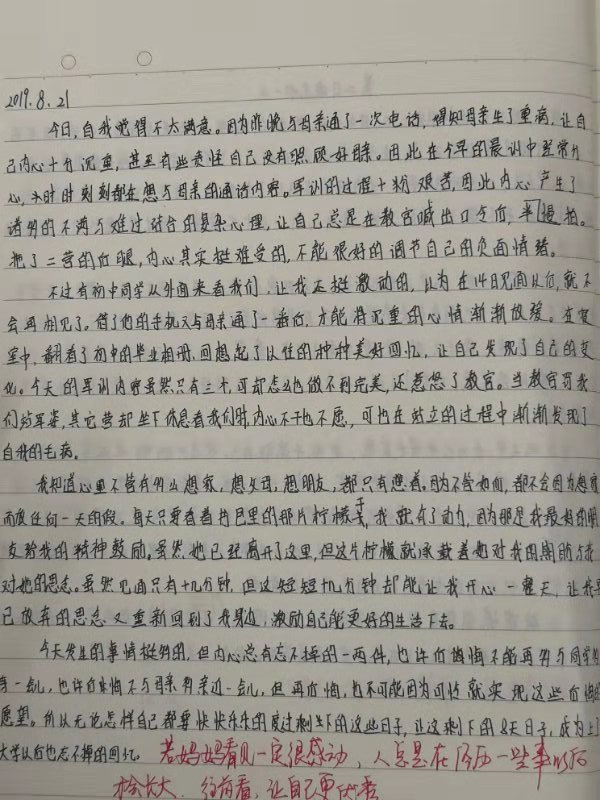 2019.8.21
今日,自我觉得不太满意。因为昨晚与母亲通了一次电话,得知母亲生了重病,让自
己内心十分沉重,甚至有些责怪自己没有照顾好母亲。因此在今早的晨训中经常分
心,头时时刻刻都在想与母亲的通话内容。军训的过程十分艰苦,因此内心产生了
诸多的不满与难过结合的复杂心理,让自己总是在教官喊出口令后,半慢拍。
拖了二营的后腿,内心其实挺难受的,不能很好的调节自己的负面情绪。
不过有初中同学从外面来看我们,让我还挺激动的,以为在14日见面以后,就不
会再相见了。借了他的手机又与母亲通了一番后,才能将沉重的心情渐渐放缓。在寝
室中,翻看了初中的毕业相册,回想起了以往的种种美好回忆,让自己发现了自己的变
化。今天的军训内容虽然只有三个,可却怎么也做不到完美,还惹怒了教官。当教官罚我
们站军姿,其它营却坐下休息看我们时,内心不甘也不愿,可也在站立的过程中渐渐发现了
自我的毛病。
我知道心里不管有多么想家,想父母,想朋友,都只有憋着。因为不管如何,都不会因为想家
而放任何一天的假。每天只要看着抽屉里的那片柠檬干,我就有了动力,因为那是我最好的朋
友给我的精神鼓励。虽然她已经离开了这里,但这片柠檬就承载着她对我的期盼与我
对她的思念。虽然见面只有十几分钟,但这短短十几分钟却能让我开心一整天,让我早
已放弃的思念又重新回到了我身边,激励自己能更好的生活下去。
今天发生的事情挺多的,但内心总有忘不掉的一两件,也许后悔不能再多与同学
一会儿,也许后悔不与母亲多亲近一会儿,但再后悔,也不可能因为可怜就实现这些后悔的
愿望。所以无论怎样自己都要快快乐乐的度过剩下的这些日子,让这剩下的8天日子,成为上
大学以后也忘不掉的回忆。若妈妈看见一定很感动,人总是在经历一些事以后
才会长大,往前看,让自己更优秀